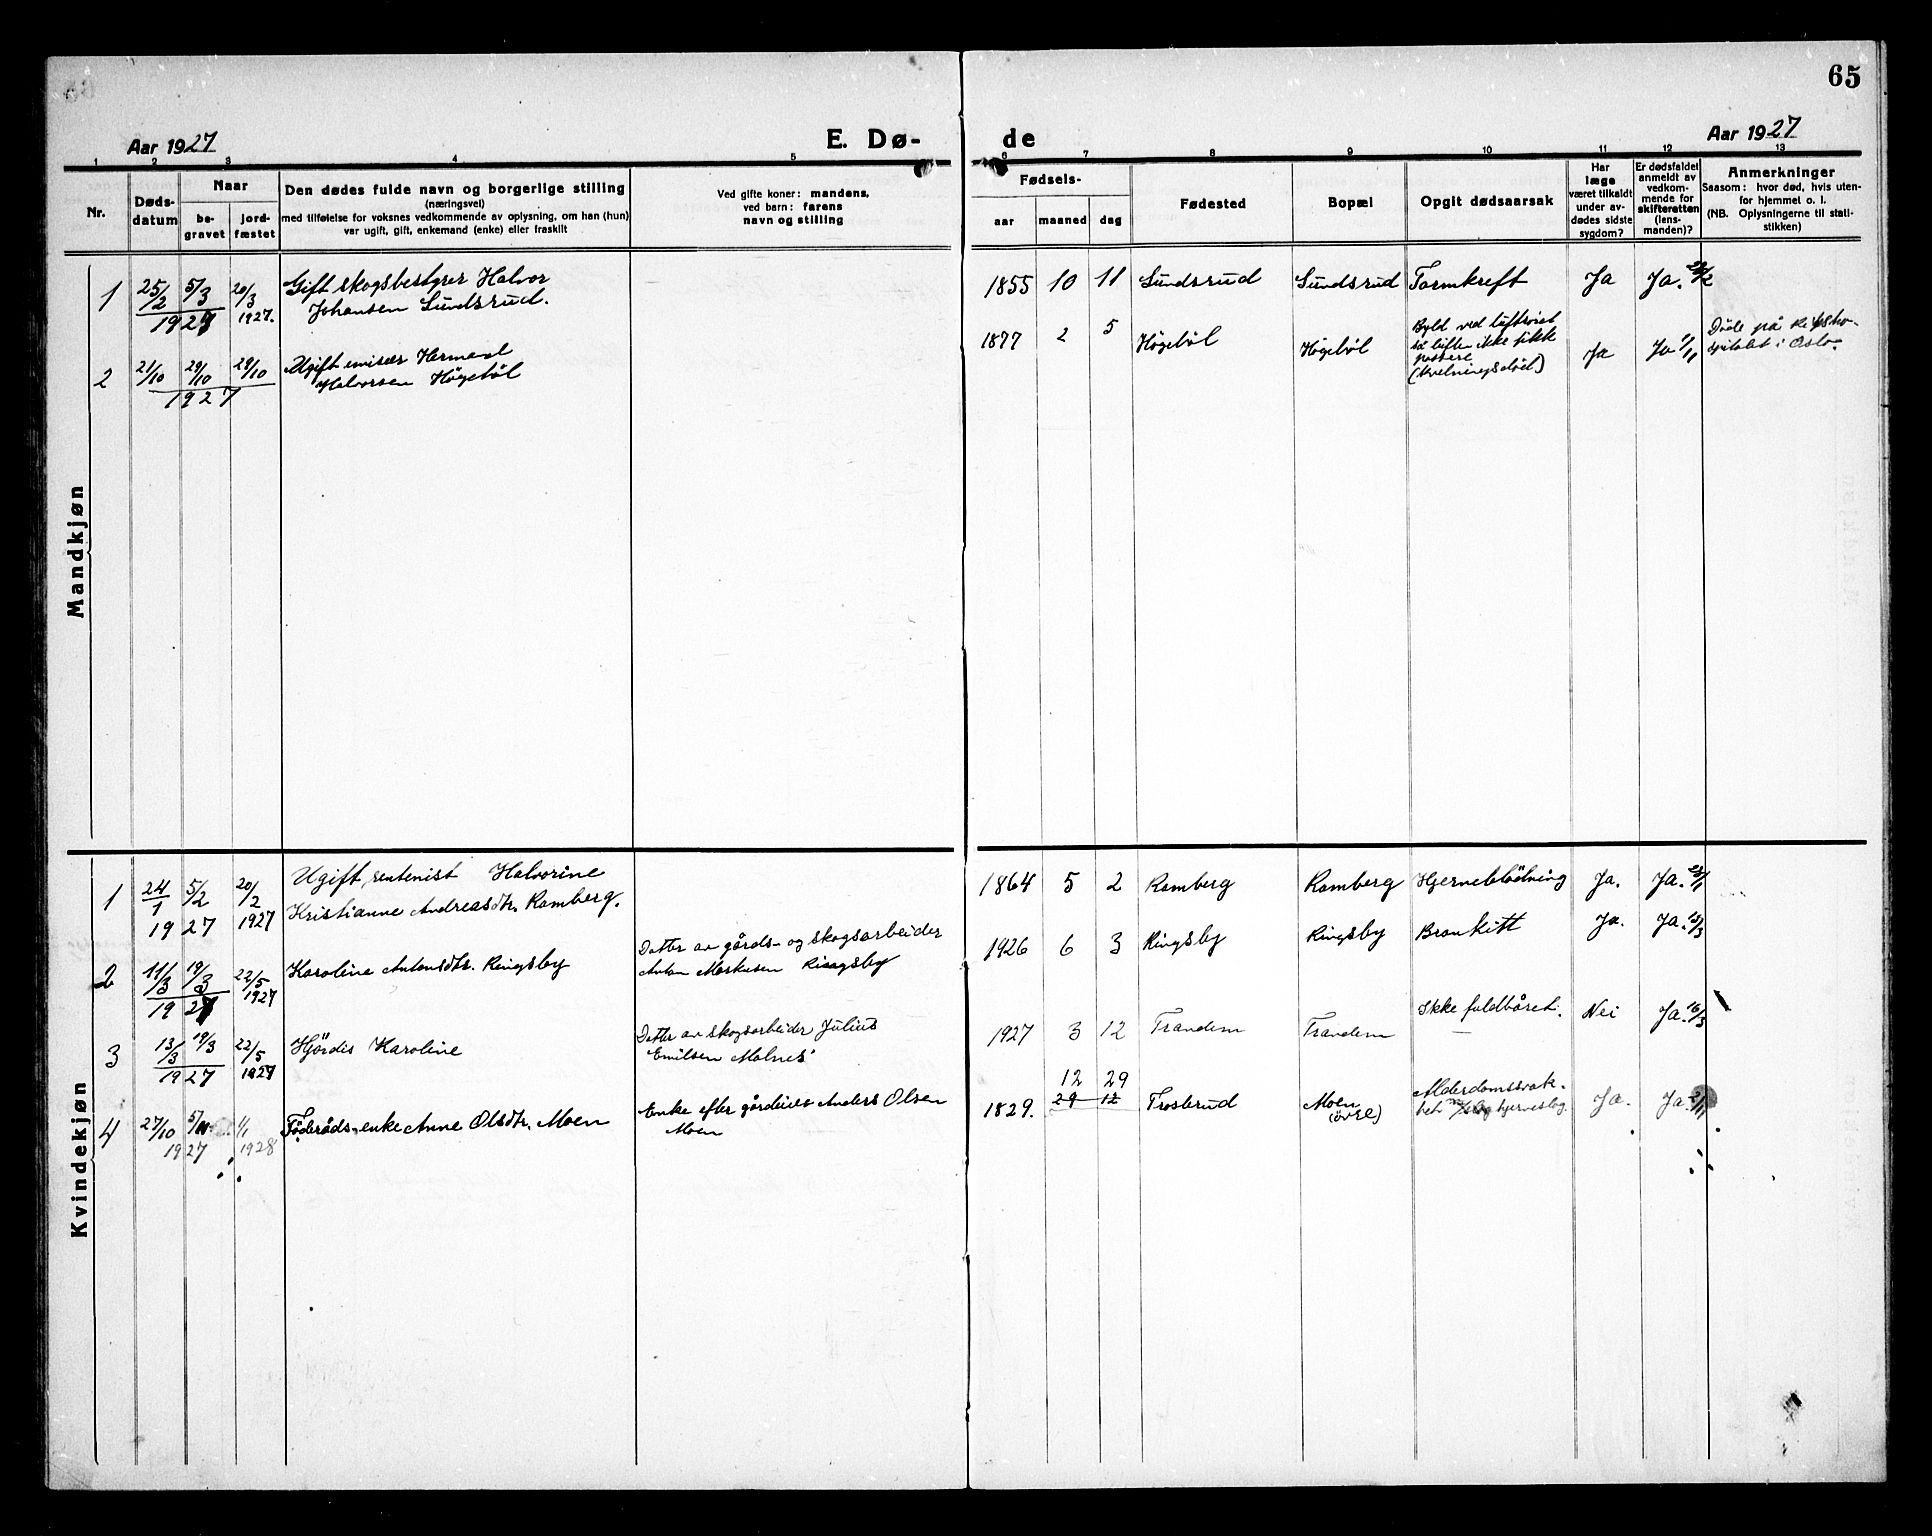 65
Aar 1927
E. Dø-
de
Aar 1927
1 2 3 4 5 6 7 8 9 10 11 12 13
Nr.
Døds-
datum
Naar
be-
gravet
jord-
fæstet
Den dødes fulde navn og borgerlige stilling
(næringsvei)
med tilføielse for voksnes vedkommende av oplysning, om han (hun)
var ugift, gift, enkemand (enke) eller fraskilt
Ved gifte koner: mandens,
ved barn: farens
navn og stilling
Fødsels-
aar maaned dag
Fødested
Bopæl
Opgit dødsaarsak
Har
læge
været tilkaldt
under av-
dødes sidste
sygdom?
Er dødsfaldet
anmeldt av
vedkom-
mende for
skifteretten
(lens-
manden)?
Anmerkninger
Saasom: hvor død, hvis uten-
for hjemmet o. l.
(NB. Oplysningerne til stati-
stikken)
Mandkjøn
1 25/2 5/3 20/3 Gift skogsbestyrer Halvor
1927 1927. Johansen Sundsrud.
1855 10 11 Sundsrud Sundsrud Tarmkreft Ja Ja.
2 21/10 29/10 29/10 Ugift emisær Herman
1927 Halvorsen Høgebøl
1877 2 5 Høgebøl Høgebøl
Byld ved luftrøret
så luften ikke fikk
passere
(Kvelningsdød)
Ja Ja
Døde på Riksho-
spitalet i Oslo
Kvindekjøn
1 24/1 5/2 20/2 Ugift, rentenist Halvorine
1927 1927 Kristianne Andreasdtr. Ramberg.
1864 5 2 Ramberg Ramberg Hjerneblødning Ja. Ja.
2 11/3 19/3 22/5 Karoline Antonsdtr. Ringsby
1927 1927
Datter av gårds- og skogsarbeider
Anton Markusen Ringsby
1926 6 3 Ringsby Ringsby Bronkitt Ja. Ja. 15/3
3 13/3 19/3 22/5 Hjørdis Karoline
1927 1927
Datter av skogsarbeider Julius
Emilsen Molnes
1927 3 12 Trandem Trandem Ikke fuldbåret. Nei Ja. 16/3
4 27/10 5/11 1/1 Føderåds-enke Anne Olsdtr. Moen
1927 1928
Enke efter gårdeier Anders Olsen
Moen
12 29
1829. 29 12 Trosterud Moen
(øvre)
Alderdomssvak-
het og hjerneslag.
Ja. Ja